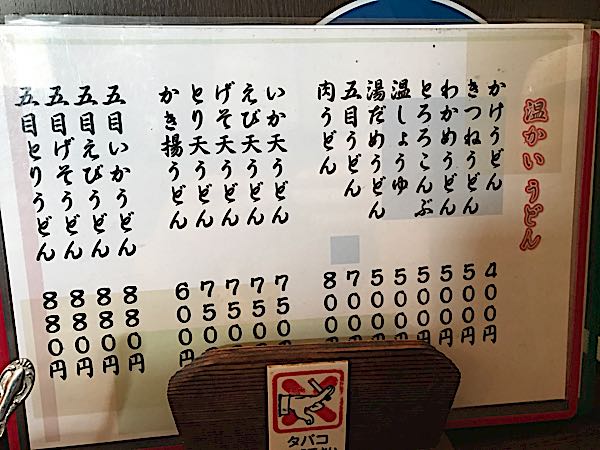 温かいうどん
かけうどん 400円
きつねうどん 500円
わかめうどん 500円
とろろこんぶ 500円
温しょうゆ 500円
湯だめうどん 500円
五目うどん 700円
肉うどん 800円
いか天うどん 750
えび天うどん 750
げそ天うどん 750
とり天うどん 750
かき揚うどん 600
五目いかうどん 880円
五目えびうどん 880円
五目げそうどん 880円
五目とりうどん 880円
タバコ